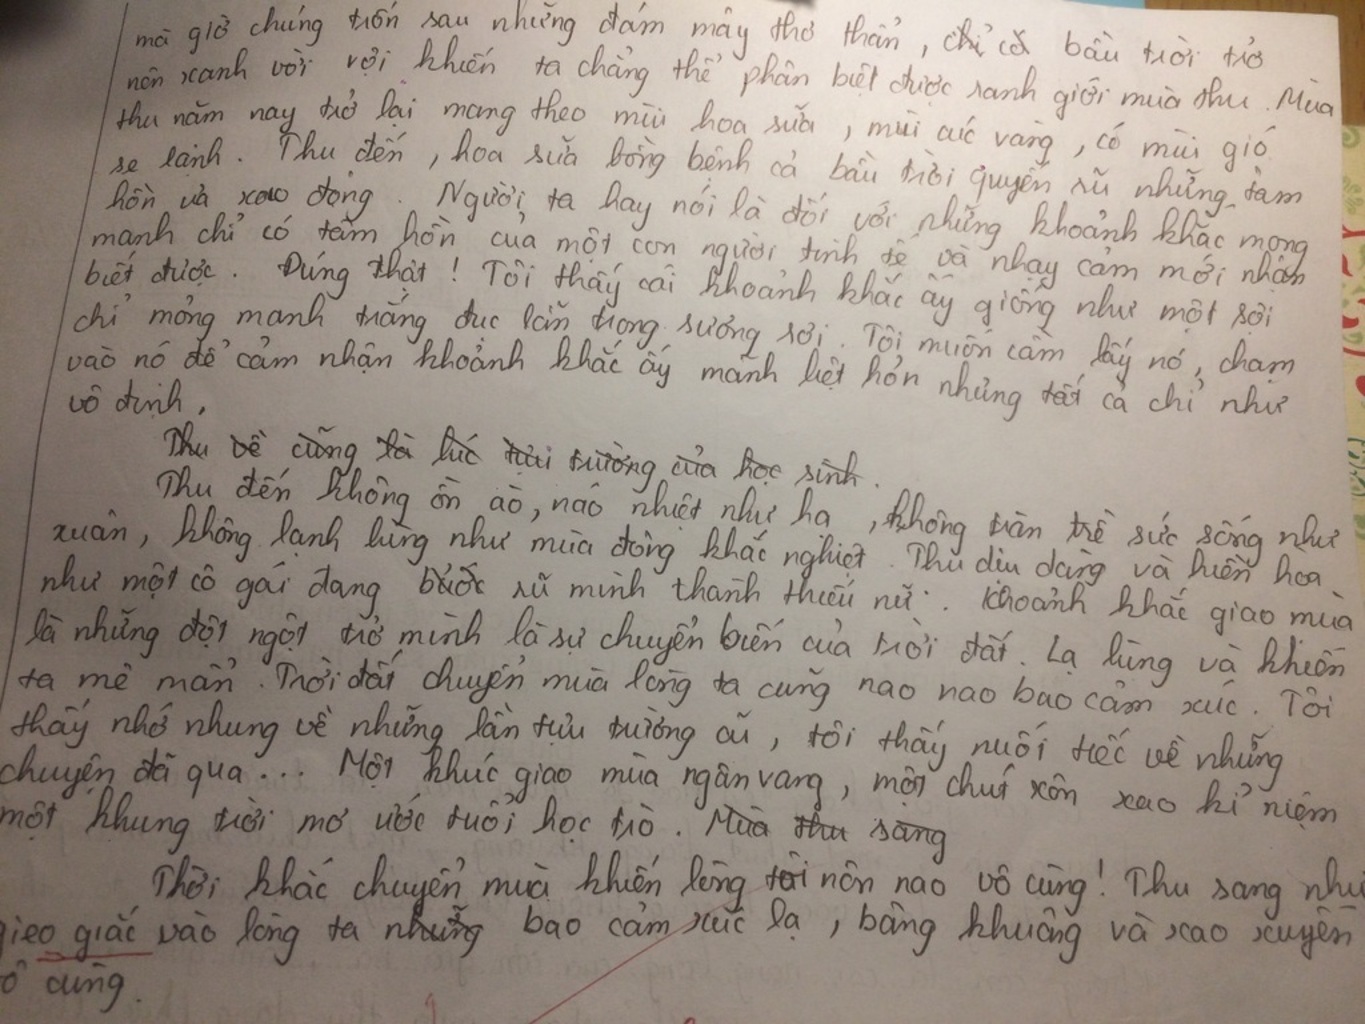 mà giờ chúng trốn sau những đám mây thơ thẩn, chỉ có bầu trời trở
nên xanh vời vợi khiến ta chẳng thể phân biệt được ranh giới mùa thu. Mùa
thu năm nay trở lại mang theo mùi hoa sữa, mùi cúc vàng, có mùi gió
se lạnh. Thu đến, hoa sữa bồng bềnh cả bầu trời quyến rũ những tâm
hồn và xao động. Người ta hay nói là đối với những khoảnh khắc mong
manh chỉ có tâm hồn của một con người tinh tế và nhạy cảm mới nhận
biết được. Đúng thật! Tôi thấy cái khoảnh khắc ấy giống như một sợi
chỉ mỏng manh trắng đục lẩn trong sương sơi. Tôi muốn cầm lấy nó, chạm
vào nó để cảm nhận khoảnh khắc ấy mãnh liệt hơn nhưng tất cả chỉ như
vô định,
Thu về cũng là lúc tựu trường của học sinh.
Thu đến không ồn ào, náo nhiệt như hạ, không tràn trề sức sống như
xuân, không lạnh lùng như mùa đông khắc nghiệt. Thu dịu dàng và hiền hoa
như một cô gái đang bước rũ mình thành thiếu nữ. Khoảnh khắc giao mùa
là những đột ngột trở mình là sự chuyển biến của trời đất. Lạ lùng và khiến
ta mê mẩn. Trời đất chuyển mùa lòng ta cũng nao nao bao cảm xúc. Tôi
thấy nhớ nhung về những lần tựu trường cũ, tôi thấy nuối tiếc về những
chuyện đã qua... Một khúc giao mùa ngân vang, một chút xôn xao kỉ niệm
một khung trời mơ ước tuổi học trò. Mùa thu sang
Thời khắc chuyển mùa khiến lòng tôi nôn nao vô cùng! Thu sang như
gieo giắc vào lòng ta những bao cảm xúc lạ, bâng khuâng và xao xuyến
ô cùng.